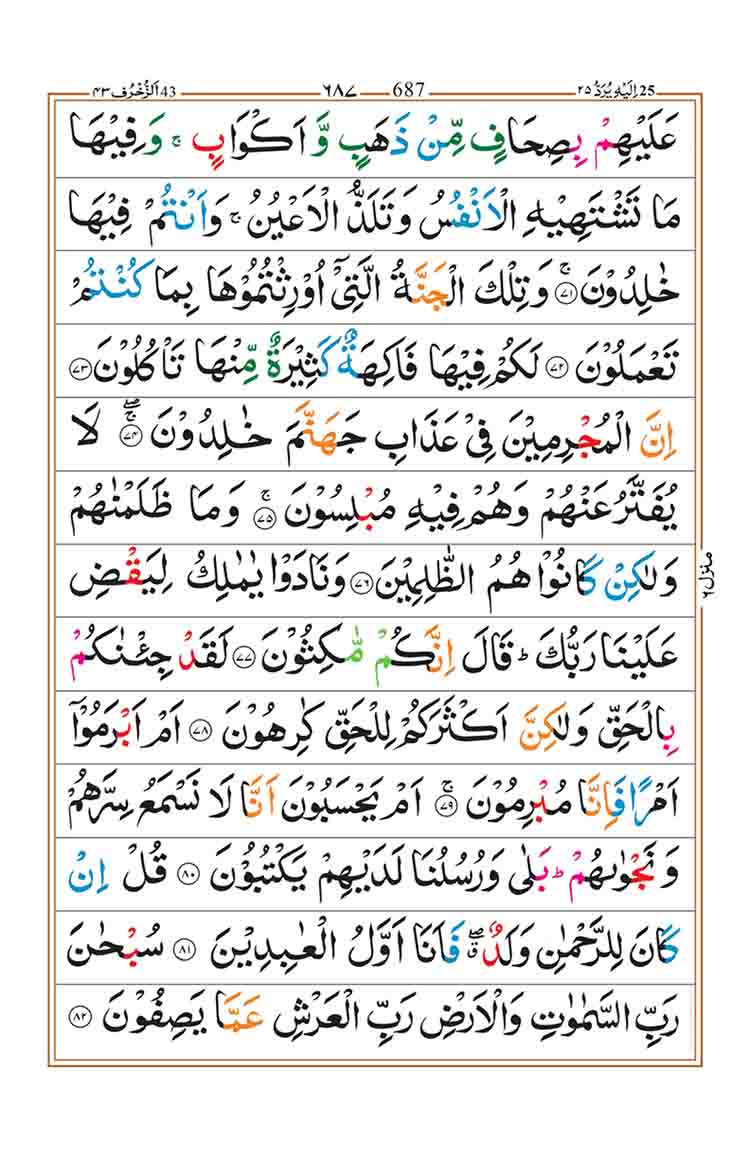 25 اِلَيْهِ يُرَدُّ ٢٥ 687 ٦٨٧ 43 اَلزُّخْرُف ٤٣
عَلَيْهِمْ بِصِحَافٍ مِّنْ ذَهَبٍ وَّ اَكْوَابٍ ۚ وَ فِيْهَا
مَا تَشْتَهِيْهِ الْاَنْفُسُ وَ تَلَذُّ الْاَعْيُنُ ۚ وَ اَنْتُمْ فِيْهَا
خٰلِدُوْنَ ۚ﴿۷۱﴾ وَ تِلْكَ الْجَنَّةُ الَّتِيْۤ اُوْرِثْتُمُوْهَا بِمَا كُنْتُمْ
تَعْمَلُوْنَ ﴿۷۲﴾ لَكُمْ فِيْهَا فَاكِهَةٌ كَثِيْرَةٌ مِّنْهَا تَاْكُلُوْنَ ﴿۷۳﴾
اِنَّ الْمُجْرِمِيْنَ فِيْ عَذَابِ جَهَنَّمَ خٰلِدُوْنَ ۖۚ﴿۷۴﴾ لَا
يُفَتَّرُ عَنْهُمْ وَ هُمْ فِيْهِ مُبْلِسُوْنَ ۚ﴿۷۵﴾ وَ مَا ظَلَمْنٰهُمْ
وَلٰكِنْ كَانُوْا هُمُ الظّٰلِمِيْنَ ﴿۷۶﴾ وَ نَادَوْا يٰمٰلِكُ لِيَقْضِ
عَلَيْنَا رَبُّكَ ؕ قَالَ اِنَّكُمْ مّٰكِثُوْنَ ﴿۷۷﴾ لَقَدْ جِئْنٰكُمْ
بِالْحَقِّ وَلٰكِنَّ اَكْثَرَكُمْ لِلْحَقِّ كٰرِهُوْنَ ﴿۷۸﴾ اَمْ اَبْرَمُوْۤا
اَمْرًا فَاِنَّا مُبْرِمُوْنَ ۚ﴿۷۹﴾ اَمْ يَحْسَبُوْنَ اَنَّا لَا نَسْمَعُ سِرَّهُمْ
وَ نَجْوٰىهُمْ ؕ بَلٰى وَ رُسُلُنَا لَدَيْهِمْ يَكْتُبُوْنَ ﴿۸۰﴾ قُلْ اِنْ
كَانَ لِلرَّحْمٰنِ وَلَدٌ ۖۗ فَاَنَا اَوَّلُ الْعٰبِدِيْنَ ﴿۸۱﴾ سُبْحٰنَ
رَبِّ السَّمٰوٰتِ وَ الْاَرْضِ رَبِّ الْعَرْشِ عَمَّا يَصِفُوْنَ ﴿۸۲﴾
منزل ٦